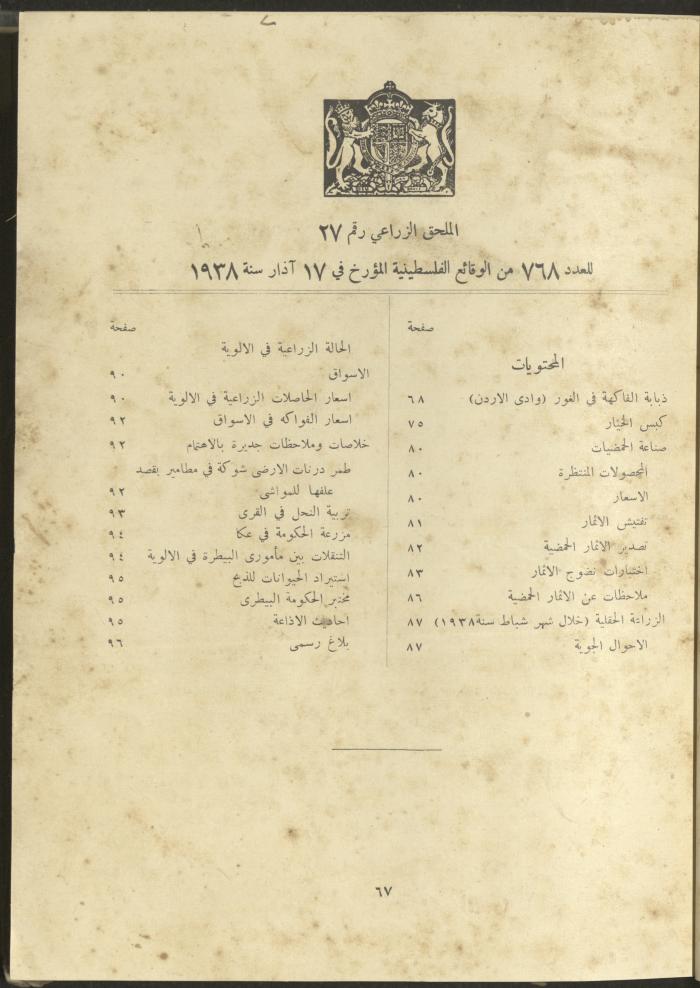 الملحق الزراعي رقم ٢٧
للعدد ٧٦٨ من الوقائع الفلسطينية المؤرخ في ١٧ آذار سنة ١٩٣٨
صفحة
المحتويات
ذبابة الفاكهة في الغور (وادى الاردن) ٦٨
كبس الخيار ٧٥
صناعة الحمضيات ٨٠
المحصولات المنتظرة ٨٠
الاسعار ٨٠
تفتيش الاثمار ٨١
تصدير الاثمار الحمضية ٨٢
اختبارات نضوج الاثمار ٨٣
ملاحظات عن الاثمار الحمضية ٨٦
الزراعة الحقلية (خلال شهر شباط سنة ١٩٣٨) ٨٧
الاحوال الجوية ٨٧
صفحة
الحالة الزراعية في الالوية
الاسواق ٩٠
اسعار الحاصلات الزراعية في الالوية ٩٠
اسعار الفواكه في الاسواق ٩٢
خلاصات وملاحظات جديرة بالاهتمام ٩٢
طمر درنات الارضى شوكة في مطامير بقصد
علفها للمواشى ٩٢
تربية النحل في القرى ٩٣
مزرعة الحكومة في عكا ٩٤
التنقلات بين مأمورى البيطرة في الالوية ٩٤
استيراد الحيوانات للذبح ٩٥
مختبر الحكومة البيطرى ٩٥
احاديث الاذاعة ٩٥
بلاغ رسمى ٩٦
٦٧